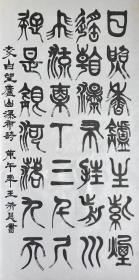 日照香鑪生紫煙
遙看瀑布挂前川
飛流直下三千尺
疑是銀河落九天
李白望廬山瀑布詩 庚午年 王 書